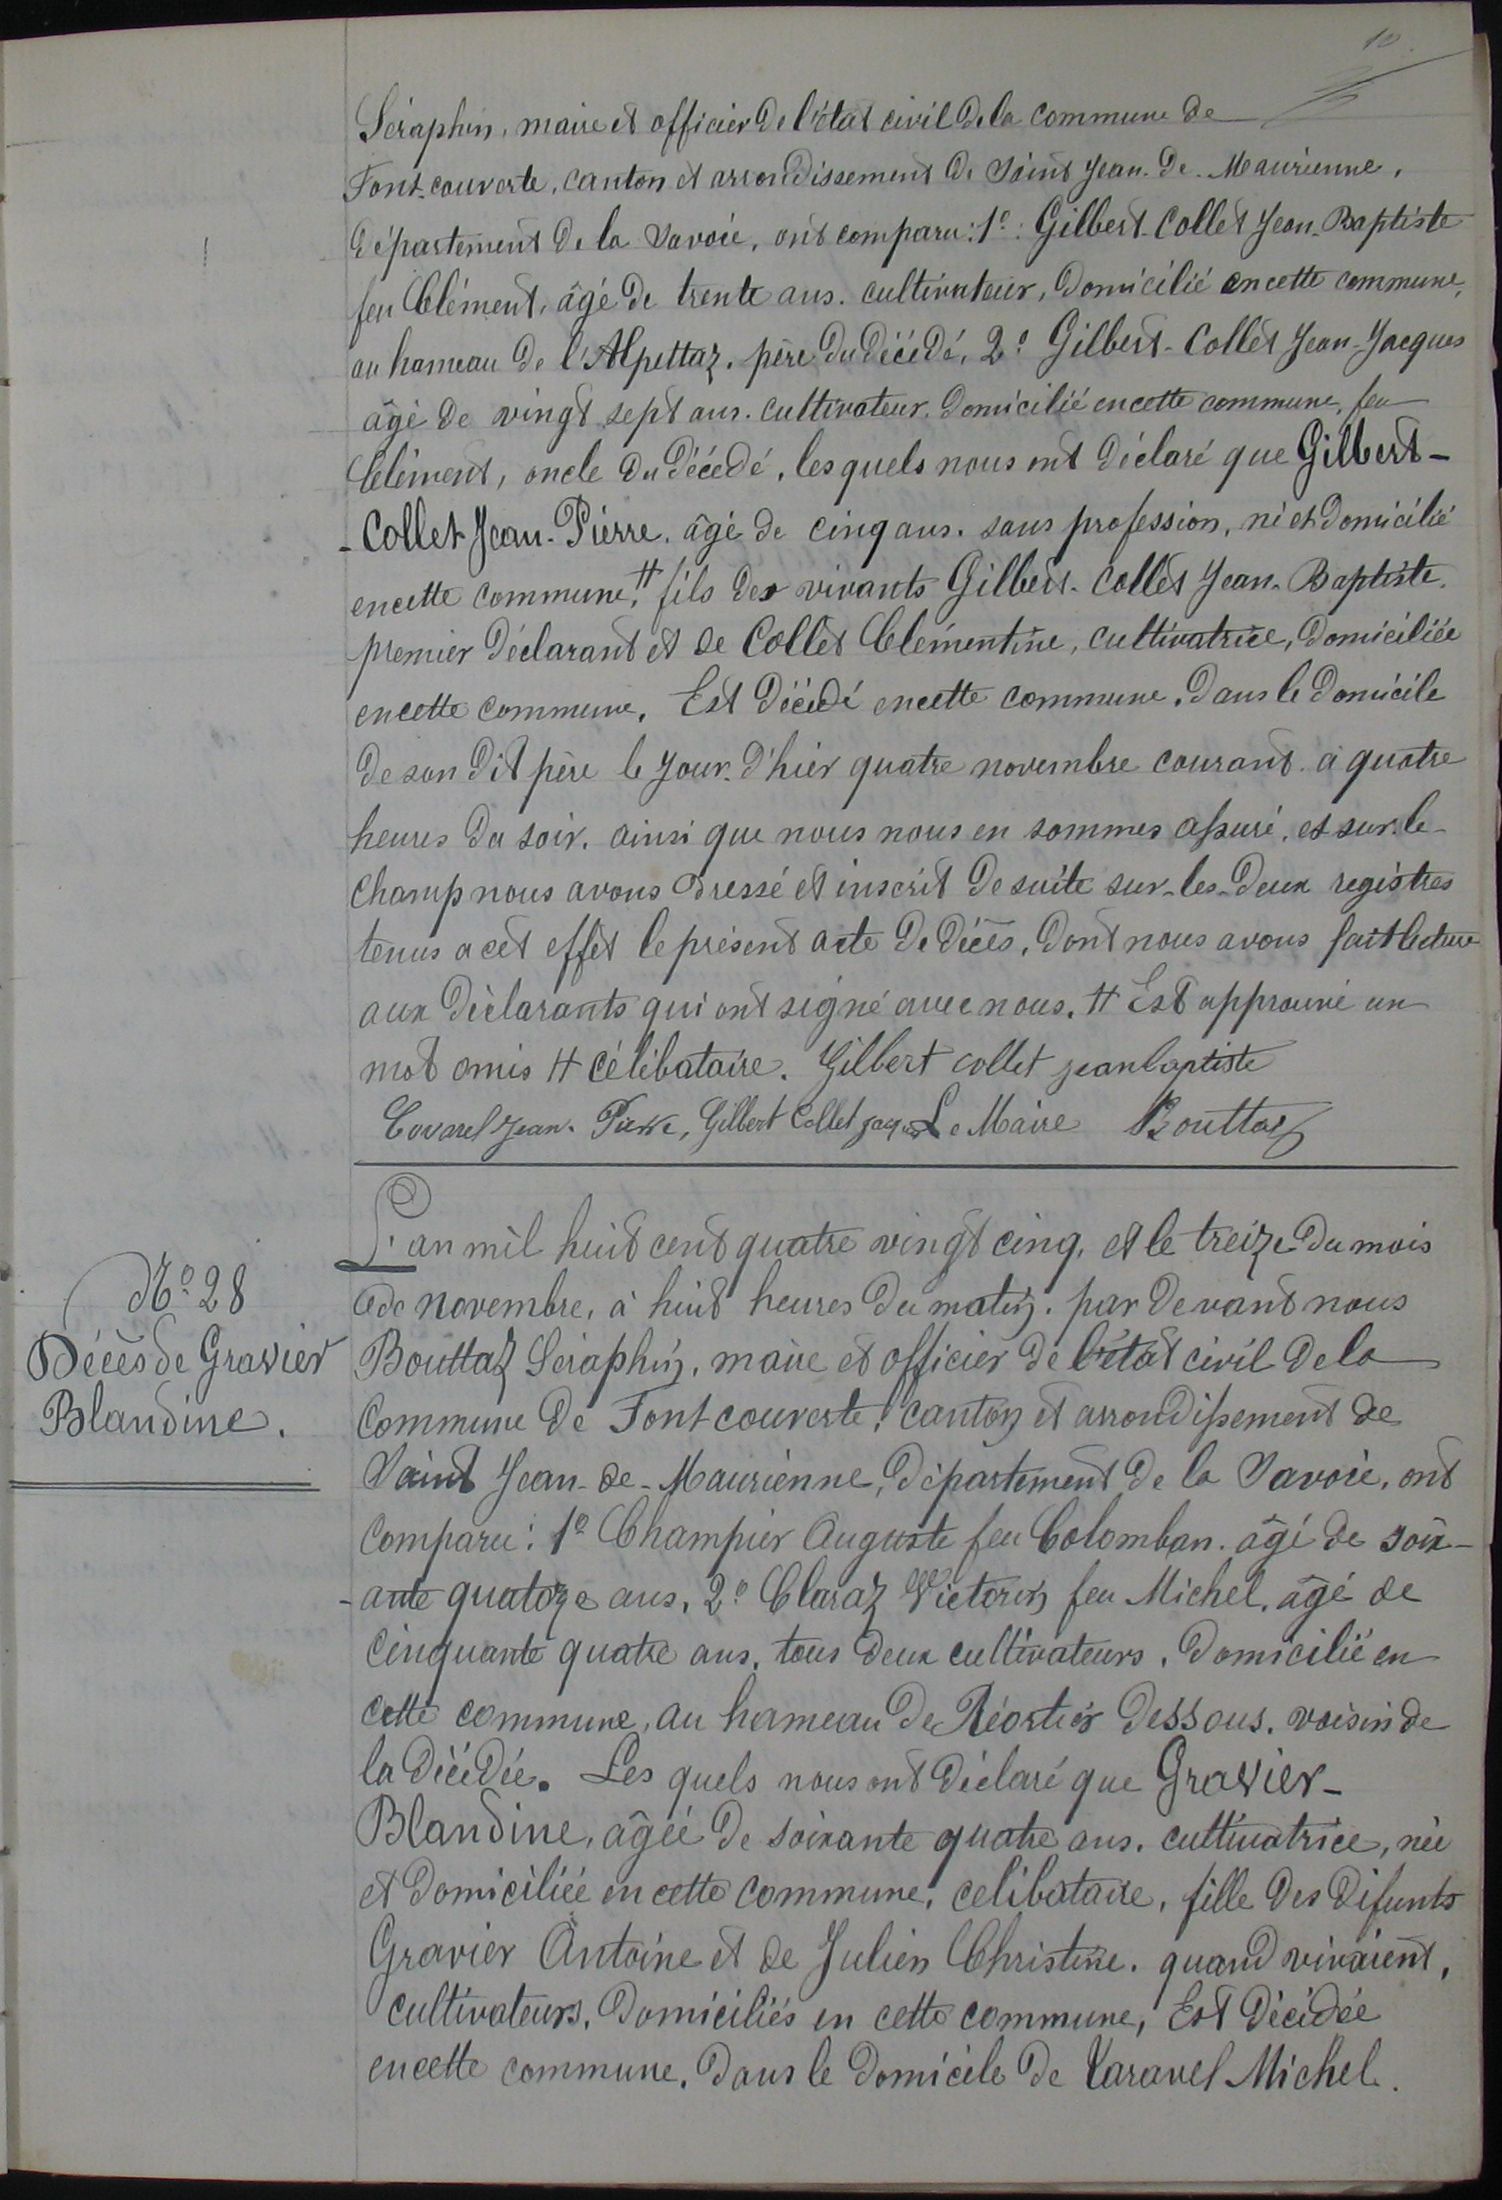 10.
Séraphin, maire et officier de l'état civil de la commune de
Font-couverte, canton et arrondissement de Saint Jean-de-Maurienne,
département de la Savoie, ont comparu: 1º: Gilbert-Collet Jean-Baptiste
feu Clément, âgé de trente ans. cultivateur, domicilié en cette commune,
au hameau de l'Alpettaz, père du décédé, 2º Gilbert-Collet Jean-Jacques
âgé de vingt sept ans. cultivateur. domicilié en cette commune, feu
Clément, oncle du décédé, les quels nous ont déclaré que Gilbert-
-Collet Jean-Pierre, âgé de cinq ans. sans profession, né et domicilié
en cette commune, # fils des vivants Gilbert-Collet Jean-Baptiste.
premier déclarant et de Collet Clémentine, cultivatrice, domiciliée
en cette commune. Est décédé en cette commune, dans le domicile
de son dit père le jour d'hier quatre novembre courant à quatre
heures du soir. ainsi que nous nous en sommes assuré, et sur-le-
champ nous avons dressé et inscrit de suite sur-les-deux registres
tenus a cet effet le présent acte de décès, dont nous avons fait lecture
aux déclarants qui ont signé avec nous. # Est approuvé un
mot omis # célibataire. Gilbert collet jean baptiste
Covarel Jean-Pierre, Gilbert Collet jaques Le Maire Bouttaz
L'an mil huit cent quatre vingt cinq, et le treize du mois
de novembre, à huit heures du matin. par devant nous
Bouttaz Séraphin, maire et officier de l'état civil de la
commune de Font couverte, canton et arrondissement de
Saint Jean-de-Maurienne, département de la Savoie, ont
comparu: 1º Champier Auguste feu Colomban. âgé de soix-
-ante quatorze ans, 2º Claraz Victorin feu Michel, âgé de
cinquante quatre ans, tous deux cultivateurs, domicilié en
cette commune, au hameau de Réortier dessous, voisin de
la décédée. Les quels nous ont déclaré que Gravier-
Blandine, âgée de soixante quatre ans. cultivatrice, née
et domiciliée en cette commune, celibataire, fille des défunts
Gravier Antoine et de Julien Christine. quand vivaient,
cultivateurs, domiciliés en cette commune, Est décédée
en cette commune, dans le domicile de Varavel Michel.
Nº 28
Décès de Gravier
Blandine.